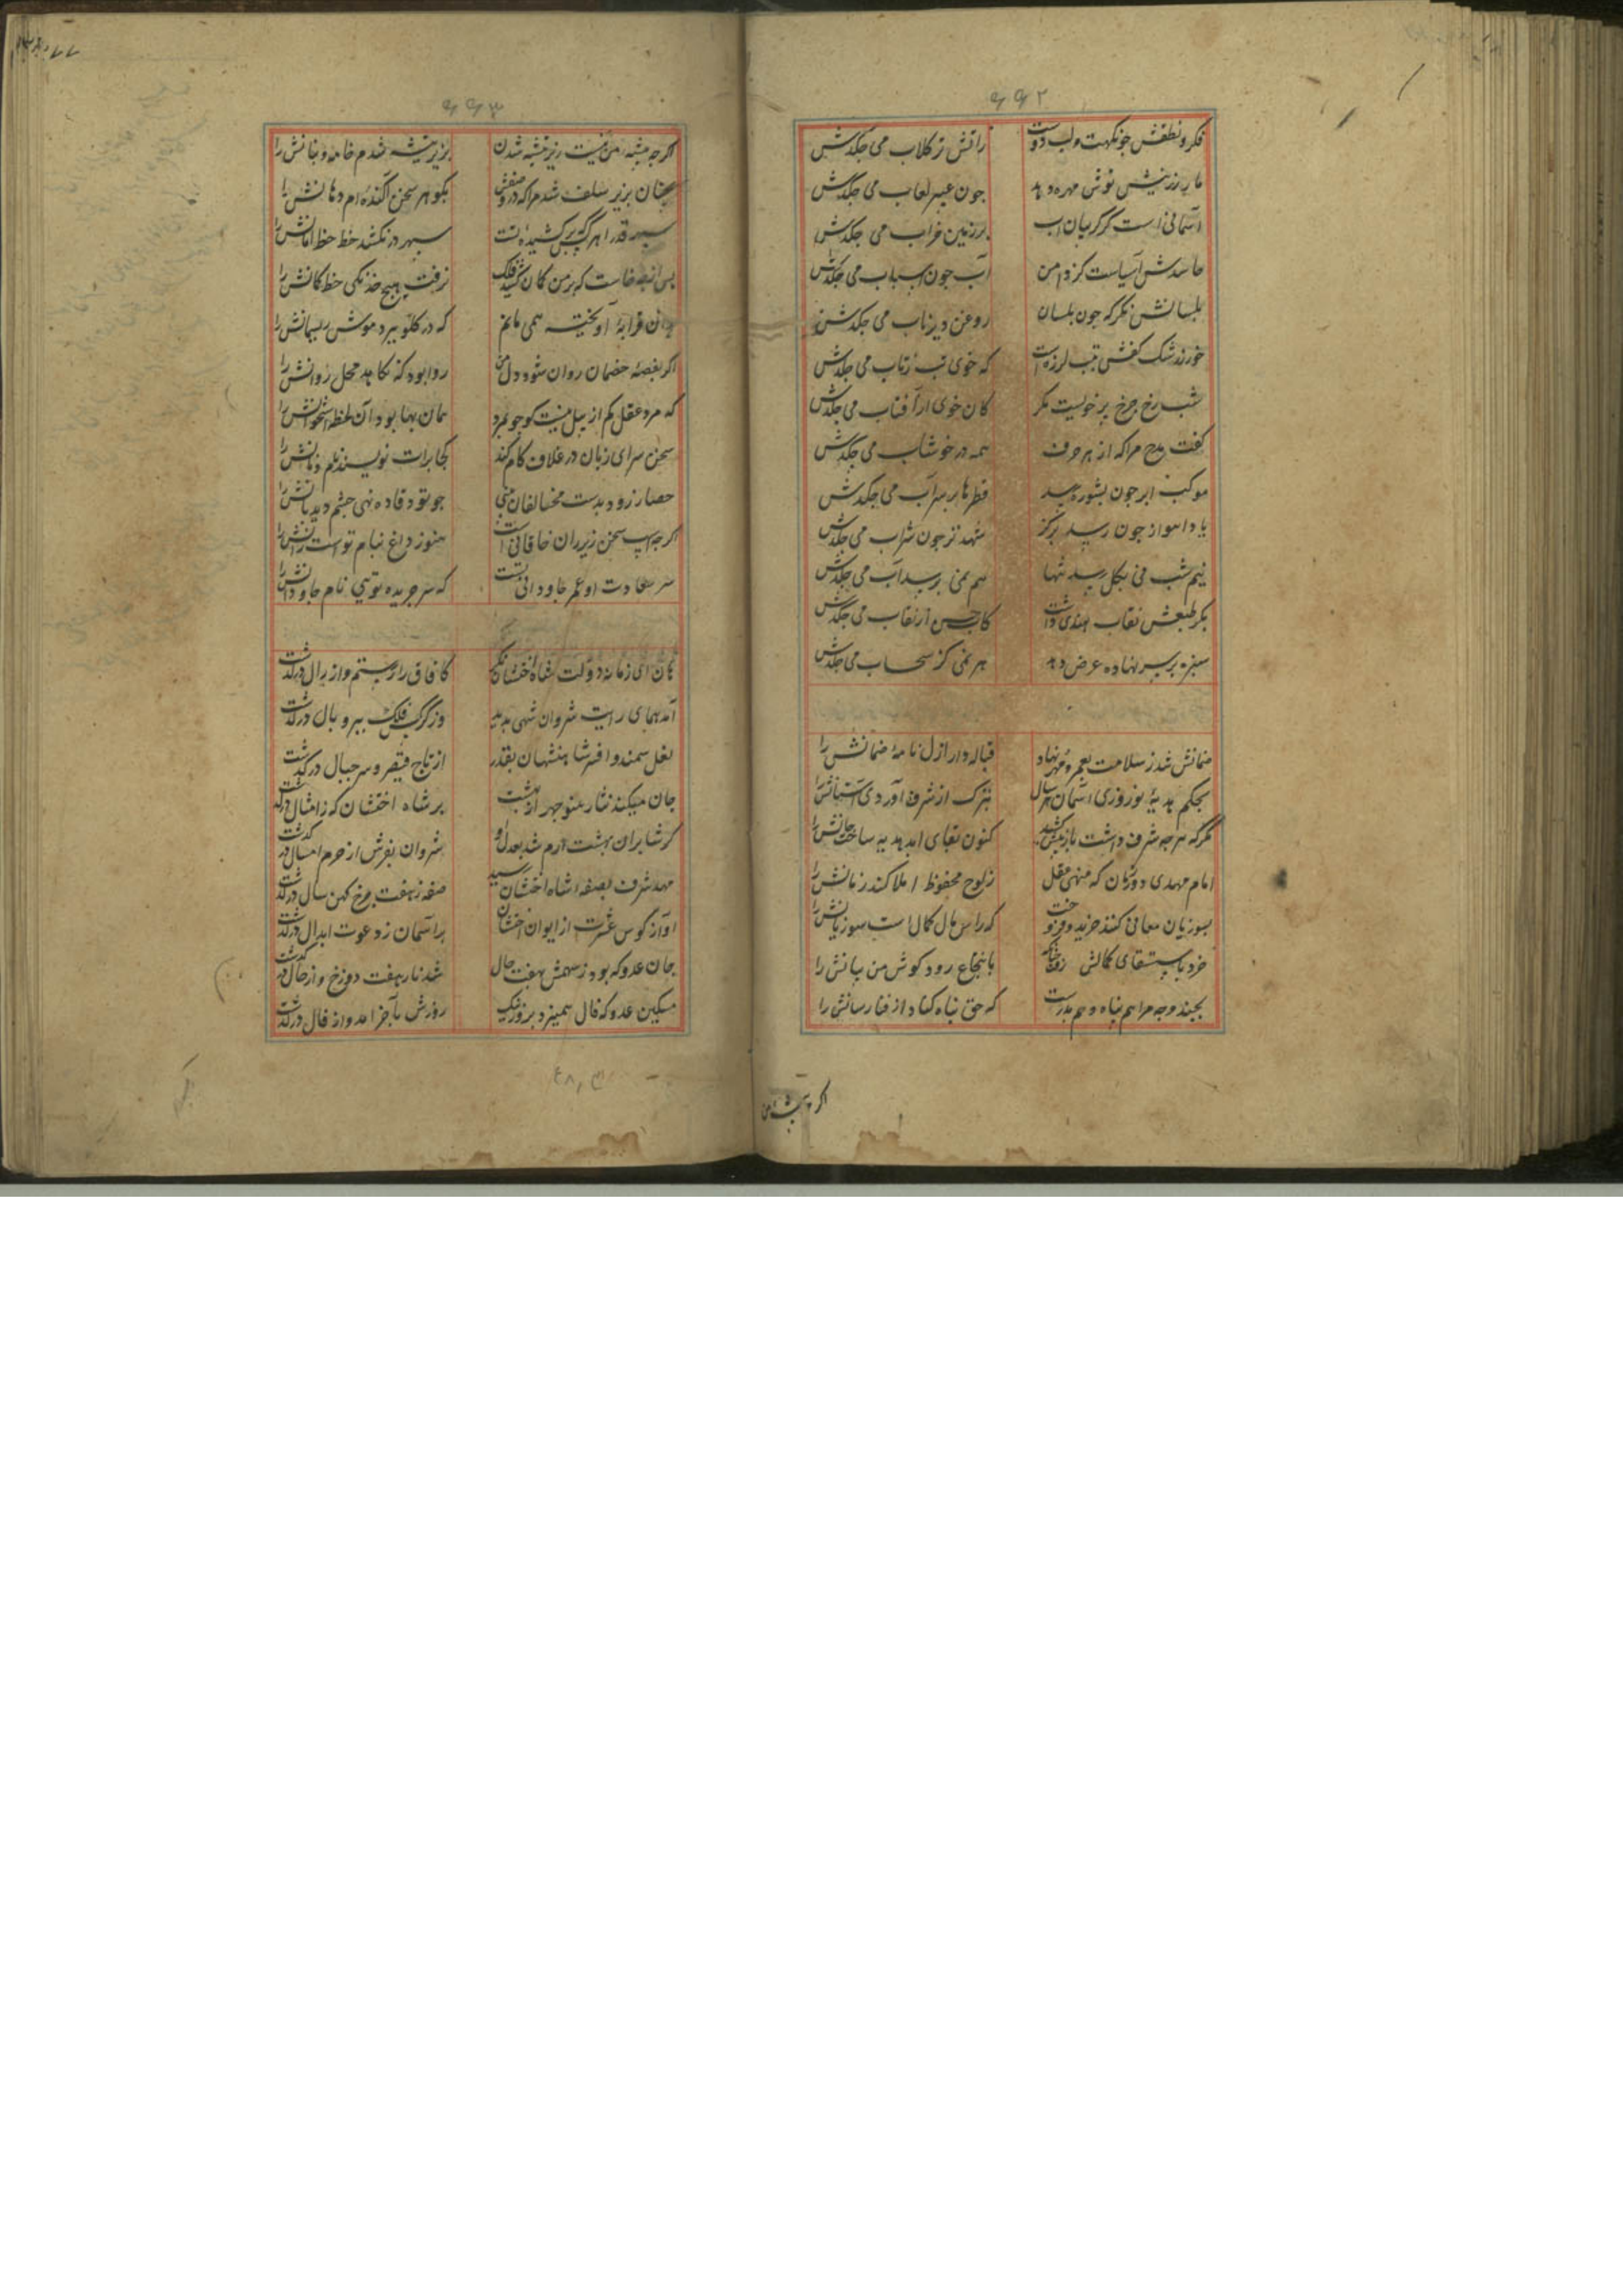 ۶۶۲
فکر و نطقش جو نکهت و لب دوست
راتش ز کلاب می جکدش
مار زرینش نوش مهره دهد
جون عبیر لعاب می جکدش
آسمانی است کز کریبان آب
بر زمین خراب می جکدش
حاسدش آسیاست کز دامن
آب جون آسیاب می جکدش
بلسانش نکر که جون بلسان
روغن دیریاب می جکدش
خور ز رشک کفش تب لرزه است
که خوی تب ز تاب می جکدش
شب رخ جرخ پر خویست مکر
کان خوی از آفتاب می جکدش
کفت مدح مرا که از هر حرف
همه در خوشاب می جکدش
موکب ابر جون بشوره رسید
قطرها بر سراب می جکدش
یا دم اهواز جون رسید برکز
شهد تر جون شراب می جکدش
نیم شب فی بکل رسد تنها
هم نمی بر سداب می جکدش
بکر طبعش نقاب هندی داشت
کاب حسن از نقاب می جکدش
سبزه بر سر نهاده عرض دهد
هر نمی کز سحاب می جکدش
ضمانش شد ز سلامت بعمر و مهر نهاد
قباله دار ازل نامهٔ ضمانش را
بحکم هدیهٔ نوروزی آسمان هر سال
تبرک از شرف آوردی آستانش را
مکر که هر جه شرف داشت باز پیش کشید
کنون بقای ابد هدیه ساخت جانش را
امام مهدی دوران که منهی عقل
ز لوح محفوظ املا کند زمانش را
بسوزیان معانی کند خرید و فروخت
که راس مال کمال است سوزیانش را
خرد باستسقای کمالش
بانتجاع رود کوش من بیانش را
بجند وجه مرا هم پناه و هم پدرست
که حق پناه کناد از فنا رسانش را
اکر جه پیشهٔ من
۶۶۳
اکر جه پیشهٔ من نیست زیر تیشه شدن
بزیر تیشه شدم خامه و بنانش را
جنان بزیر سلف شد مرا که در وصفش
بکوهر سخن آکنده ام دهانش را
سپهر قدرا هر کس که بر کشیدهٔ تست
سپهر در نکشد خط خط امانش را
بس از بصر خاست که بر من کمان کشید فلک
نرفت هیج خدنکی خطا کمانش را
بدان قرابهٔ آویخته همی مانم
که در کلو ببرد موش ریسمانش را
اکر بغصهٔ خصمان روان شود دل من
روا بود که نکاهد محل روانش را
که مرد عقل کم از پیل نیست کو جو بمرد
همان بها بود آن لحظه استخوانش را
سخن سرای زبان در غلاف کام کند
کجا برات نویسند نام و نانش را
حصار زود بدست مخالفان بینی
جو تو دقاده نهی جشم دیدبانش را
اکر جه اسب سخن زیر ران خاقانی است
هنوز داغ بنام تو است رانش را
سر سعادت او عمر جاودانی تست
که سر جریده تویی نام جاودانش را
هان ای زمانه دولت شاه اخشتان نکر
کافاق را ز رستم و از زال درکذشت
آمد همای رایت شروان شهی پدید
وز کرکس فلک ببر و بال درکذشت
نعل سمند و افسر شاهنشهان بقدر
از تاج قیصر و سر جیپال درکذشت
جان میکند نثار منوجهر از بهشت
بر شاه اخشتان که ز امثال درکذشت
کرشاسران بهشت ارم شد بعدل او
شروان بفرش از حرم امسال درکذشت
مهد شرف بصفهٔ شاه اخشتان رسید
صفه ز هفت جرخ کهن سال درکذشت
آواز کوس عشرت از ایوان اخشتان
بر آسمان ز دعوت ابدال درکذشت
جان عدو که بود ز سهمش بهفت حال
شد نار هفت دوزخ و از حال درکذشت
مسکین عدو که فال همیزد بروز نیک
روزش بآخر آمد و از فال درکذشت